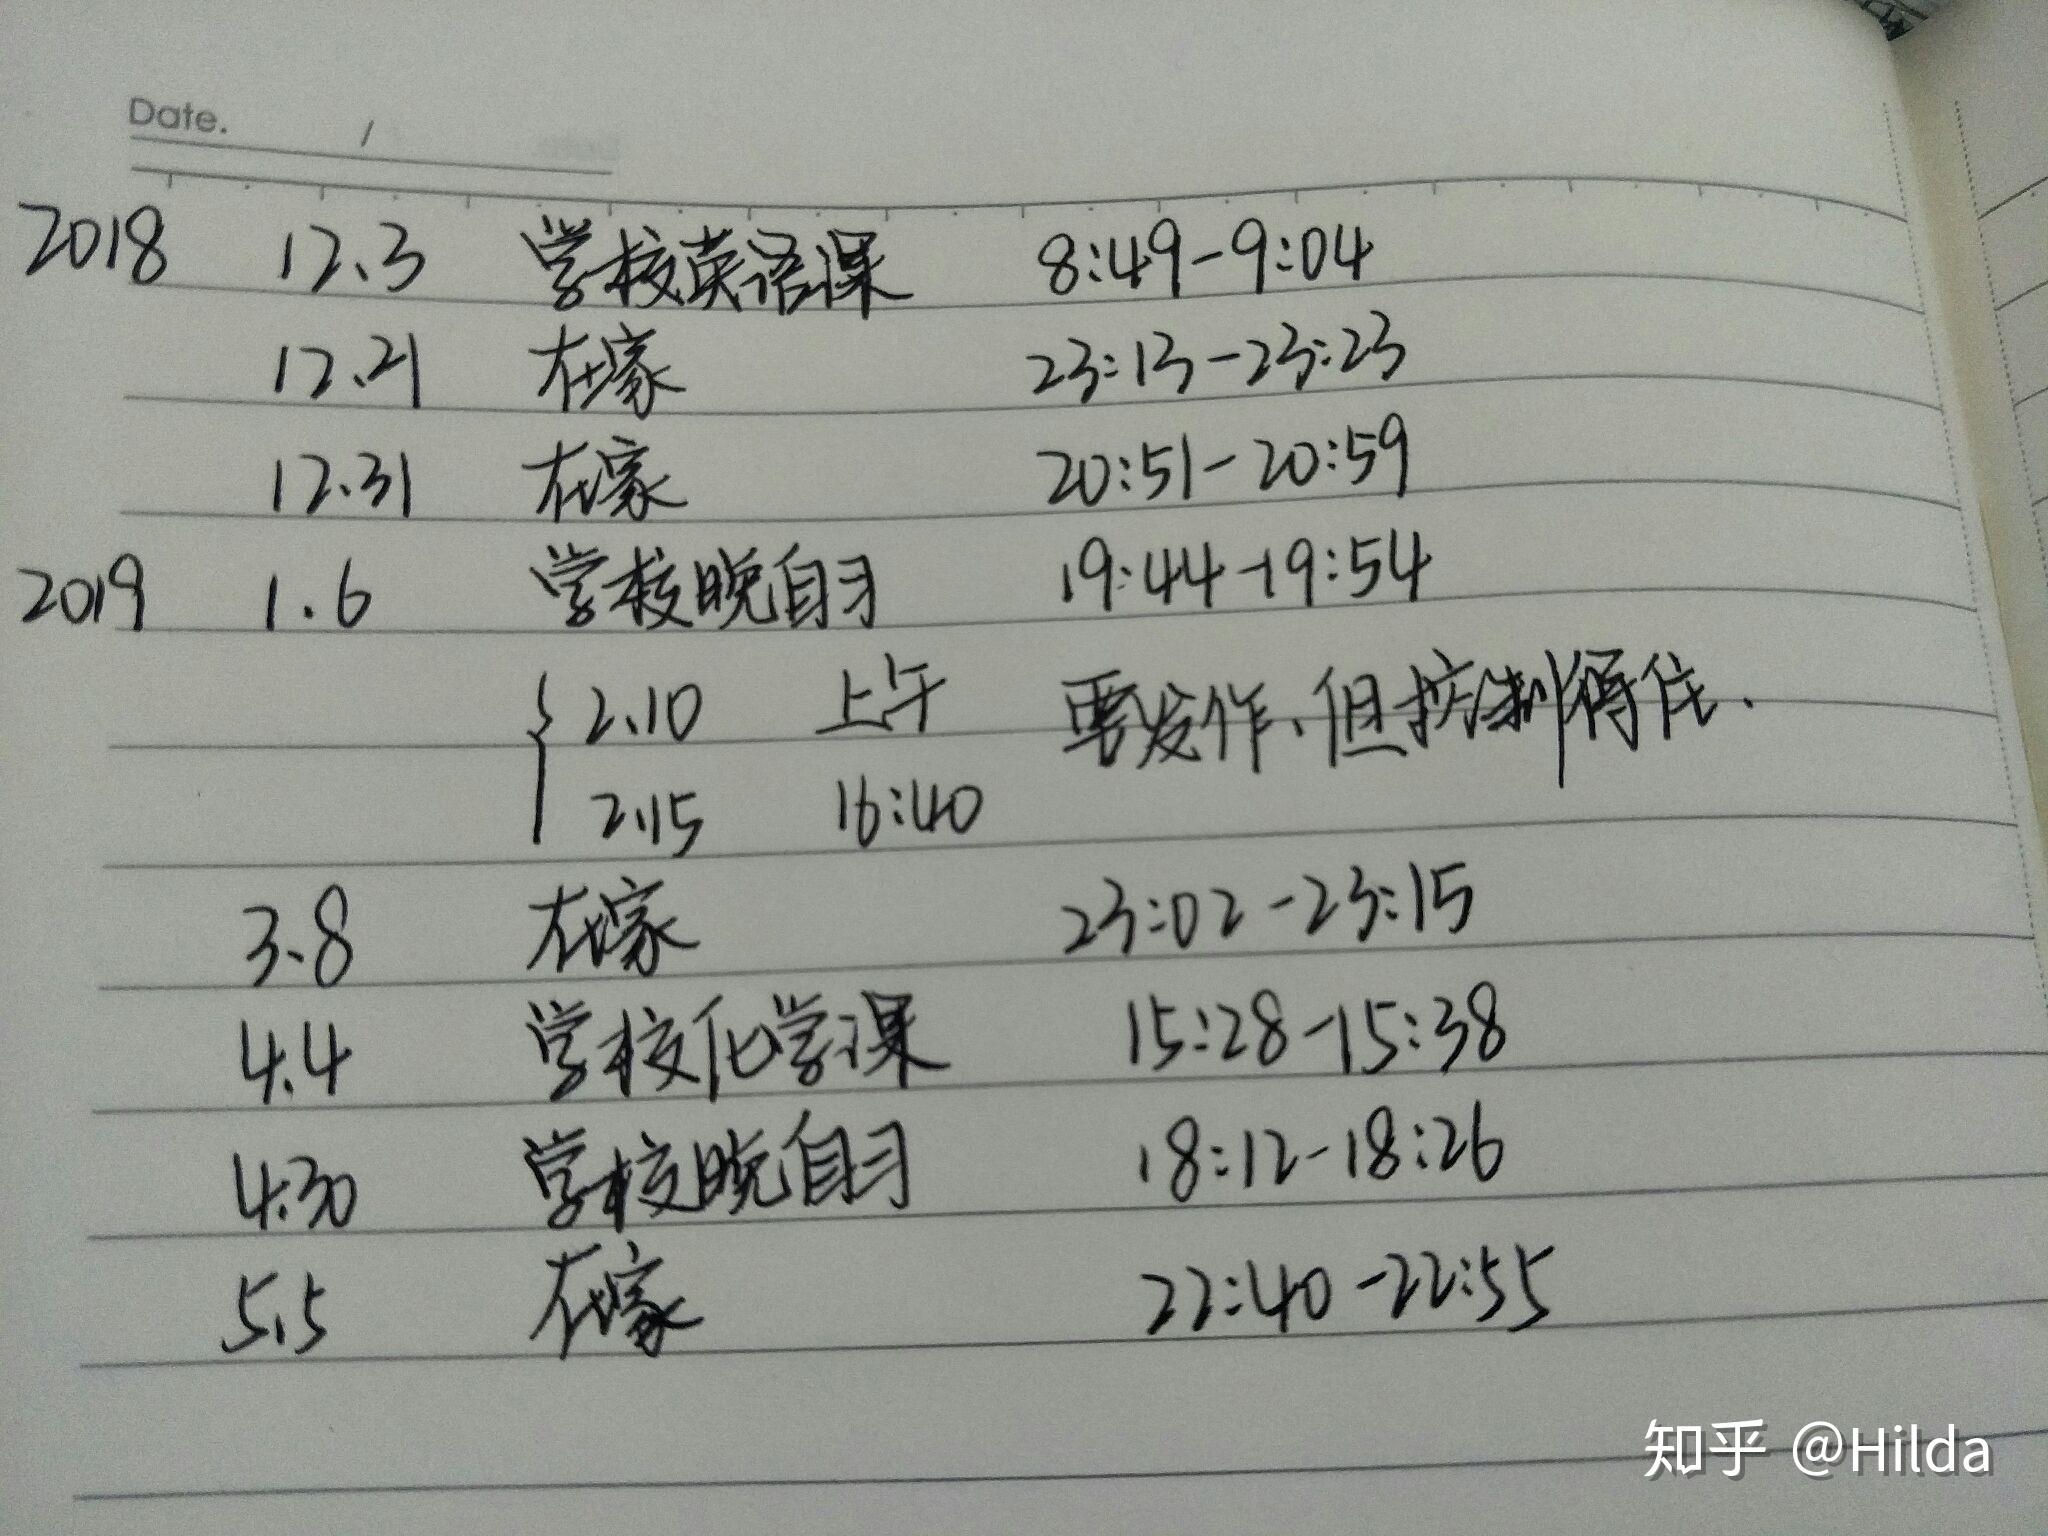 Date. /
2018 12.3 学校英语课 8:49-9:04
12.21 在家 23:13-23:23
12.31 在家 20:51-20:59
2019 1.6 学校晚自习 19:44-19:54
{ 2.10 上午 要发作、但控制得住.
2.15 16:40
3.8 在家 23:02-23:15
4.4 学校化学课 15:28-15:38
4.30 学校晚自习 18:12-18:26
5.5 在家 22:40-22:55
知乎 @Hilda